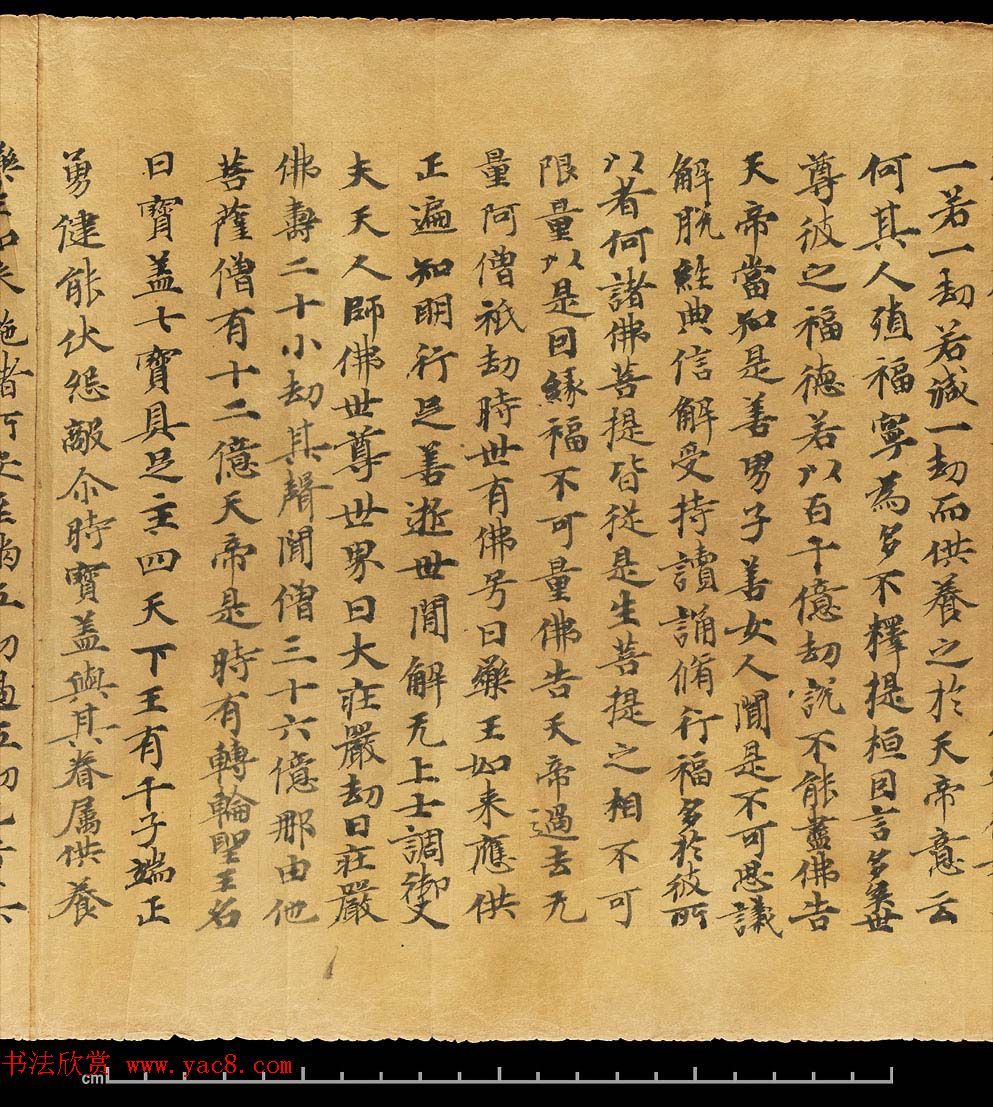 一若一劫若減一劫而供養之於天帝意云
何其人殖福寧為多不釋提桓因言多矣世
尊彼之福德若以百千億劫說不能盡佛告
天帝當知是善男子善女人聞是不可思議
解脫經典信解受持讀誦脩行福多於彼所
以者何諸佛菩提皆從是生菩提之相不可
限量以是因緣福不可量佛告天帝過去无
量阿僧祇劫時世有佛号曰藥王如来應供
正遍知明行足善逝世間解无上士調御丈
夫天人師佛世尊世界曰大莊嚴劫曰莊嚴
佛壽二十小劫其聲聞僧三十六億那由他
菩薩僧有十二億天帝是時有轉輪聖王名
曰寶盖七寶具足主四天下王有千子端正
勇健能伏怨敵尒時寶盖與其眷属供養
书法欣赏 www.yac8.com
cm